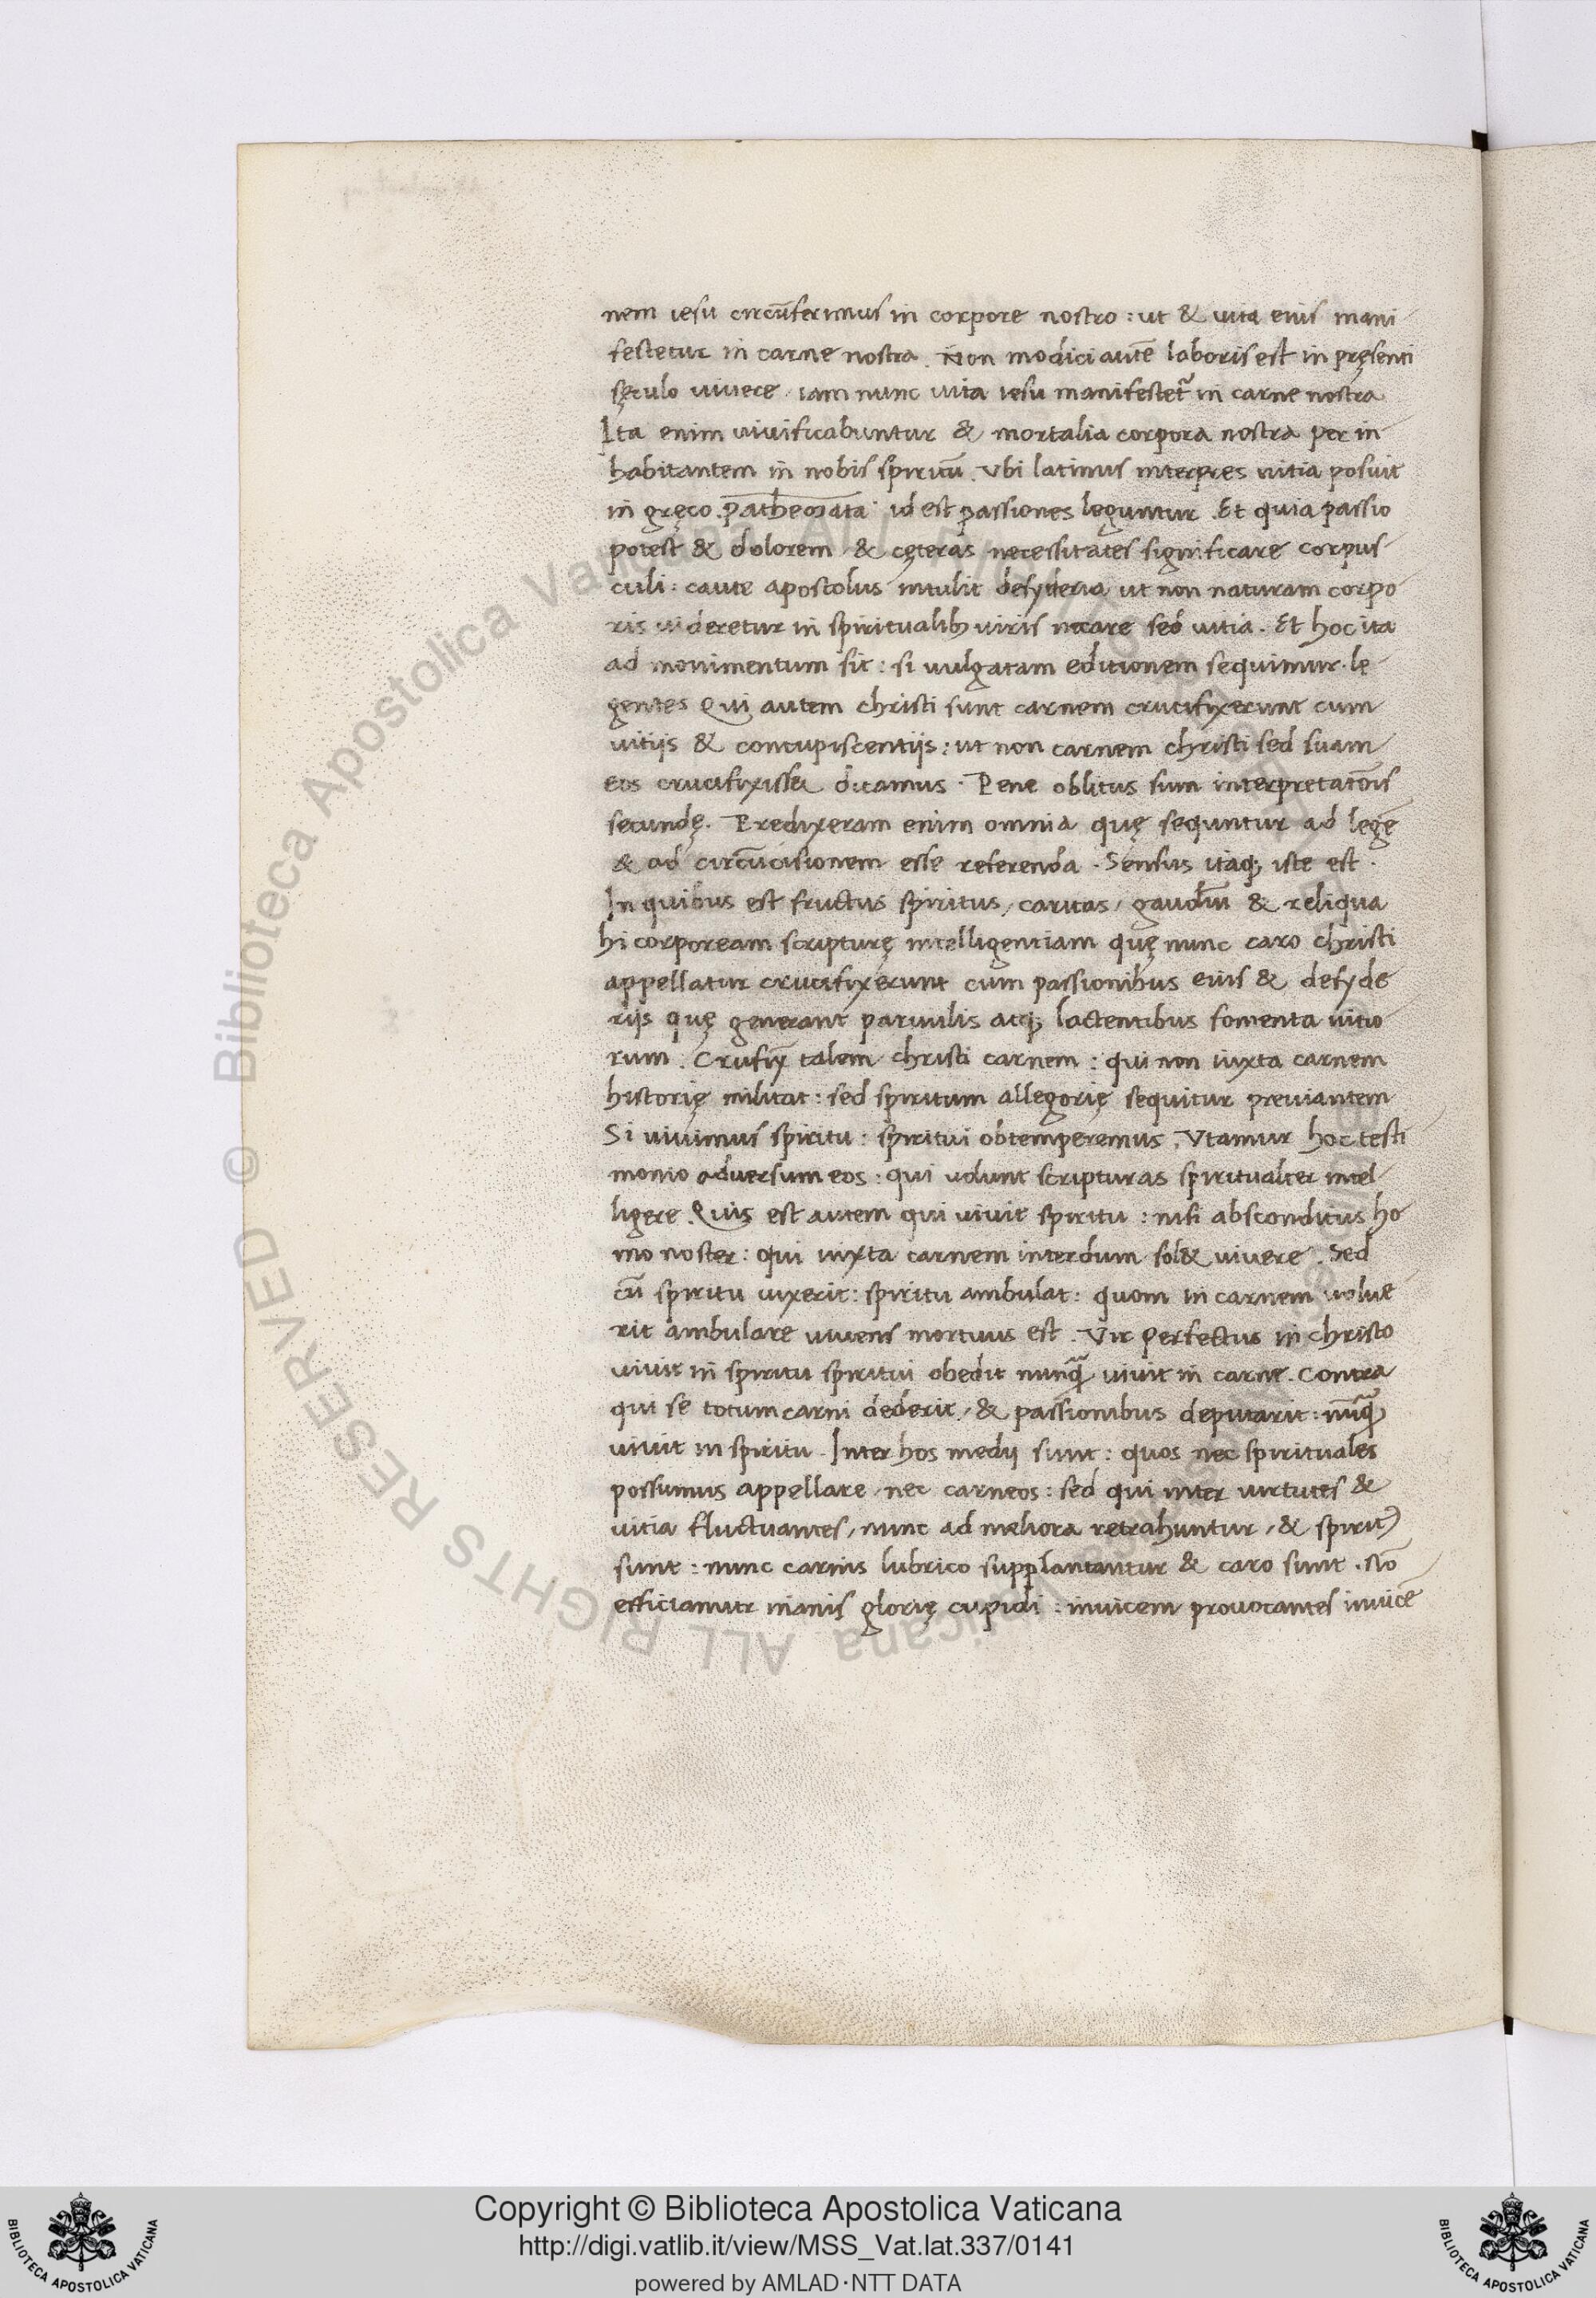 nem iesu circūferimus in corpore nostro : ut & uita eius mani
festetur in carne nostra . Non modici autē laboris est in pręsenti
sęculo uiuere , iam nunc uita iesu manifestet᷑ in carne nostra
Ita enim uiuificabuntur & mortalia corpora nostra per in
habitantem in nobis spiritū . Vbi latinus interpres uitia posuit
in gręco . patheomata . id est passiones leguntur . Et quia passio
potest & dolorem & cęteras necessitates significare corpus
culi : caute apostolus intulit desyderia ut non naturam corpo
ris uideretur in spiritualib; uiris necare sed uitia . Et hoc ita
ad monimentum sit : si uulgatam editionem sequimur . le
gentes Qui autem christi sunt carnem crucifixerunt cum
uitijs & concupiscentijs : ut non carnem christi sed suam
eos crucifixisse dicamus . Pene oblitus sum interpretatōis
secundę . Predixeram enim omnia quę sequntur ad legē
& ad circūcisionem esse referenda . Sensus itaq; iste est .
In quibus est fructus spiritus , caritas , gaudiū & reliqua
hi corpoream scripturę intelligentiam quę nunc caro christi
appellatur crucifixerunt cum passionibus eius & desyde
rijs quę generant paruulis atq; lactentibus fomenta uitio
rum . Crufix̄ talem christi carnem : qui non iuxta carnem
historię militat : sed spiritum allegorię sequitur preuiantem
Si uiuimus spiritu : spiritui obtemperemus . Vtamur hoc testi
monio aduersum eos : qui uolunt scripturas spiritualiter intel
ligere . Quis est autem qui uiuit spiritu : nisi absconditus ho
mo noster : qui iuxta carnem interdum sol& uiuere . Sed
cū spiritu uixerit : spiritu ambulat : quom in carnem uolue
rit ambulare uiuens mortuus est . Vir perfectus in christo
uiuit in spiritu spiritui obedit nunq̄ uiuit in carne . Contra
qui se totum carni dederit , & passionibus deputarit : nūq̄
uiuit in spiritu . Inter hos medij sunt : quos nec spirituales
possumus appellare , nec carneos : sed qui inter uirtutes &
uitia fluctuantes , nunc ad meliora retrahuntur , & spirit᾽
sunt : nunc carnis lubrico supplantantur & caro sunt . Nō
efficiamur inanis glorię cupidi : inuicem prouocantes inuicē
© Biblioteca Apostolica Vaticana ALL RIGHTS RESERVED
Copyright © Biblioteca Apostolica Vaticana
http://digi.vatlib.it/view/MSS_Vat.lat.337/0141
powered by AMLAD·NTT DATA
BIBLIOTECA APOSTOLICA VATICANA
BIBLIOTECA APOSTOLICA VATICANA